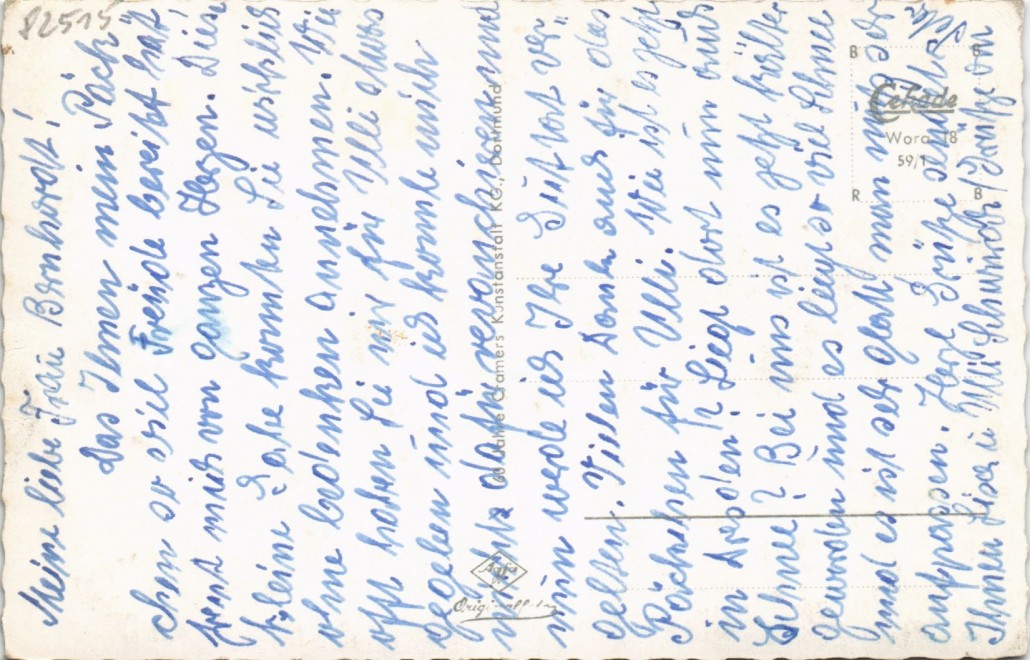 82515
Meine liebe Frau Bernhardt!
Das Ihnen mein Päck
chen so viel Freude bereit hat,
freut mich von ganzen Herzen. Diese
kleine Gabe konnten Sie wirklich
ohne bedenken annehmen. Wie
oft haben Sie mir für Ulli etwas
gegeben und ich konnte mich
nicht dafür revanchieren und
nun werde ich Ihre Gut ver-
gelten. Vielen Dank auch für das
Päckchen für Ulli. Wie ist es jetzt
in Dresden? Liegt dort nun auch
Schnee? Bei uns ist es jetzt kälter
geworden und es liegt so viel Schnee
und es ist sehr glatt man muß sehr
aufpassen. Herzl. Grüße sendet
Ihnen Lisa u. Ulli
60 Jahre Cramers Kunstanstalt KG., Dortmund
Agfa
Original
B B
Cekade
Woro 18
59/1
R B